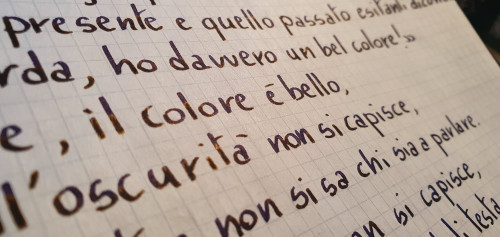 presente e quello passato esitanti
rda, ho davvero un bel colore!»
e, il colore è bello,
ll'oscurità non si capisce,
non si sa chi sia a parlare.
si capisce,
di testa